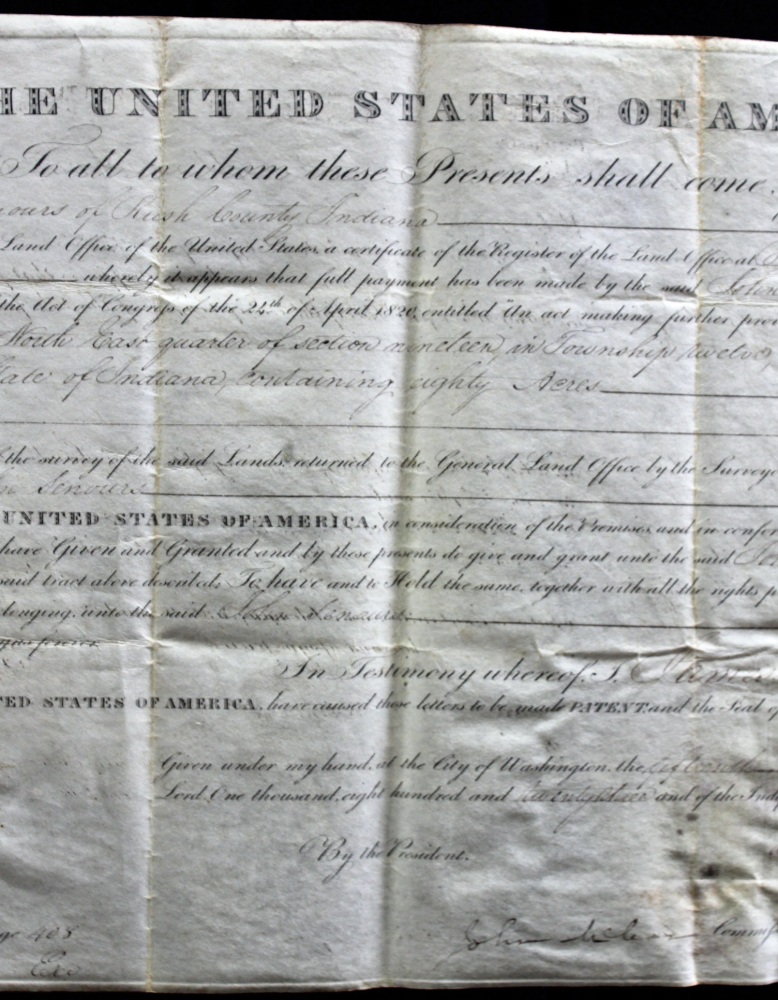 HE UNITED STATES OF AM
To all to whom these Presents shall come
nours of Rush County Indiana
Land Office of the United States, a certificate of the Register of the Land Office at
whereby it appears that full payment has been made by the said John
the Act of Congress of the 24th of April 1820, entitled "An act making further pro
North East quarter of section nineteen, in Township twelve
tate of Indiana, containing eighty Acres
the survey of the said Lands, returned to the General Land Office by the Surveyo
n Senours
UNITED STATES OF AMERICA, in consideration of the Premises, and in confor
have Given and Granted and by these presents do give and grant unto the said
said tract above described: To have and to Hold the same, together with all the rights, p
longing, unto the said John Senours
In Testimony whereof, I,
TED STATES OF AMERICA, have caused these letters to be made PATENT and the Seal of
Given under my hand, at the City of Washington, the
Lord One thousand, eight hundred and and of the Ind
By the President.
ge 408
Ex
John McLean Commiss